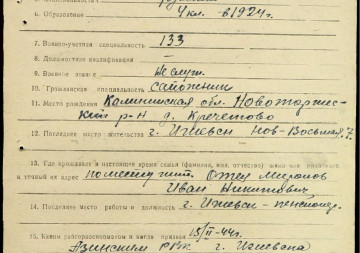 6. Образование 4 кл. в 1924г.
7. Военно-учетная специальность 133
8. Должностная квалификация —
9. Воинское звание не служ.
10. Гражданская специальность сапожник
11. Место рождения Калининская обл. Новоторжс-
кий р-н д.
12. Последнее место жительства г. Ижевск Нов-Восьмая, 7.
13. Где проживает в настоящее время семья (фамилия, имя, отчество)
и точный их адрес по месту жит. Отец Миронов
Иван Никитович
14. Последнее место работы и должность г. Ижевск - пенсионер.
15. Каким райгорвоенкоматом и когда призван 15/II-44г.
Азинским РВК г. Ижевска